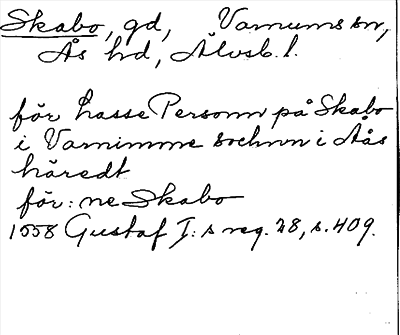 Skabo, gd, Varnums sn,
Ås hd, Älvsb. l.
för hasse Personn på Skabo
i Varnimme sochnn i Aås
häredt
för: ne Skabo
1558 Gustaf I: s reg. 28, s. 409.